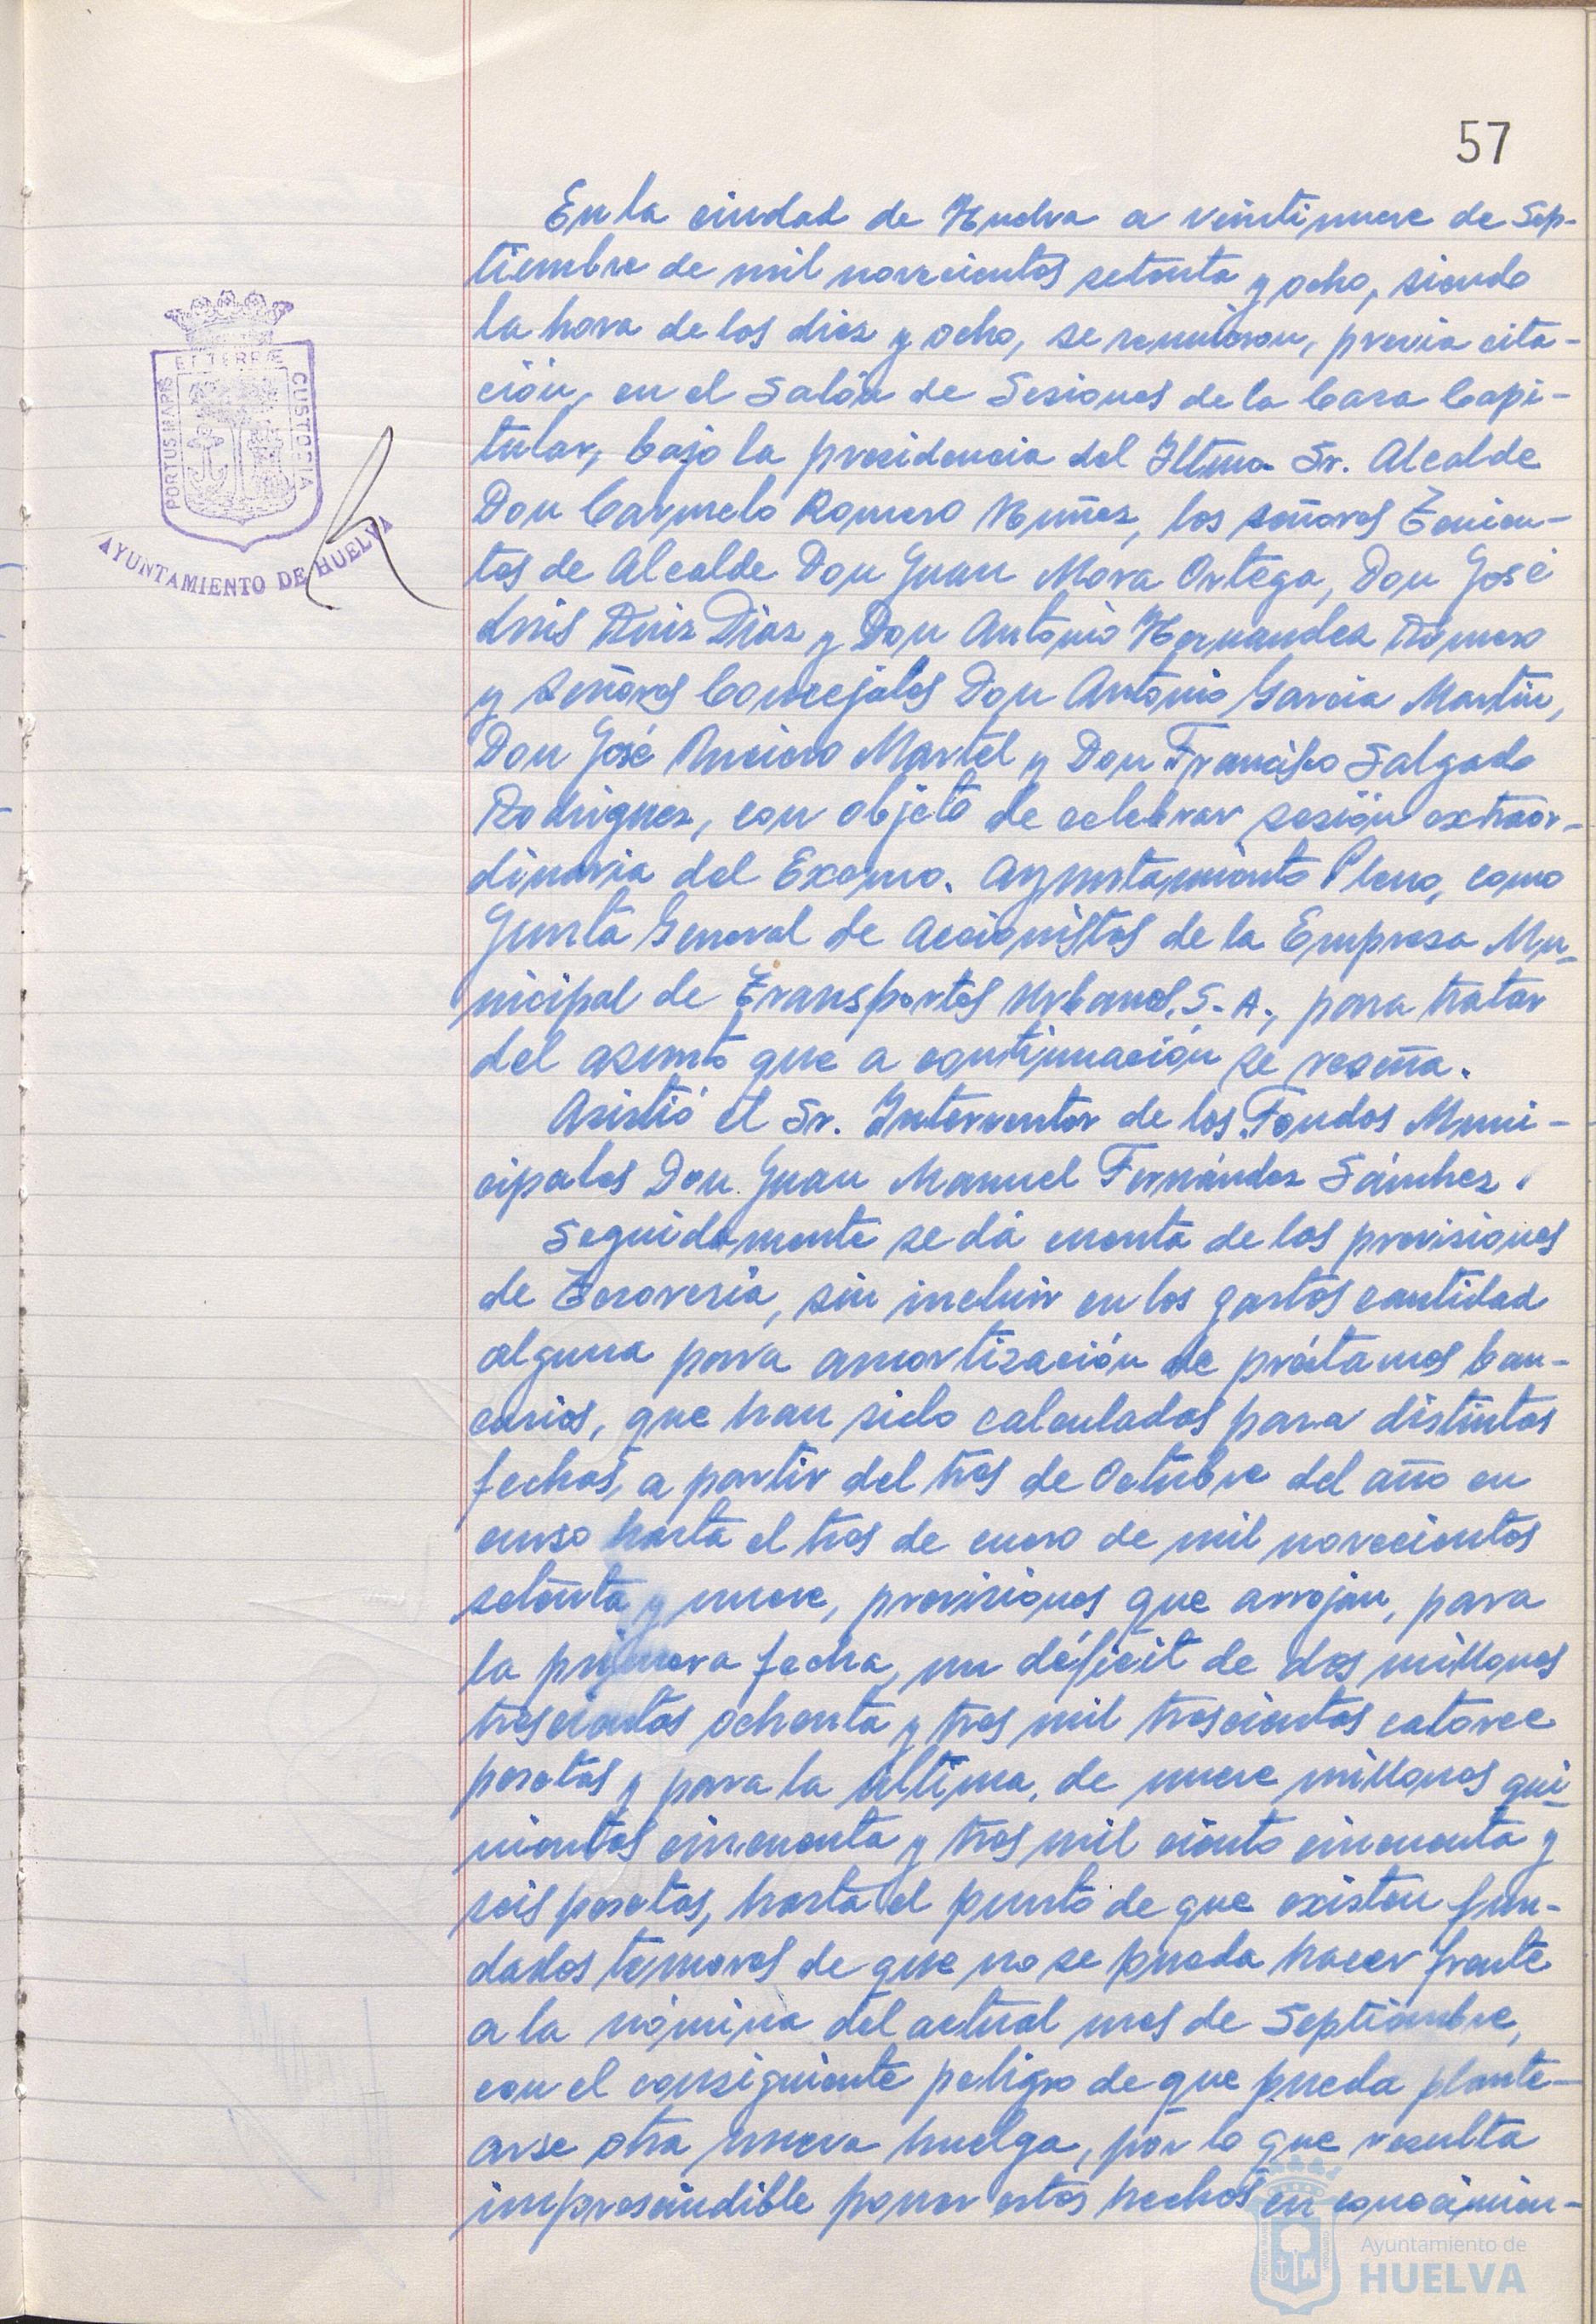 57
En la ciudad de Huelva a veintinueve de Sep-
tiembre de mil novecientos setenta y ocho, siendo
la hora de las diez y ocho, se reunieron, previa cita-
ción, en el Salón de Sesiones de la Casa Capi-
tular, bajo la presidencia del Iltmo. Sr. Alcalde
Don Carmelo Romero Núñez, los señores Tenien-
tes de Alcalde Don Juan Mora Ortega, Don José
Luis Ruiz Díaz y Don Antonio Hernandez Romero
y señores Concejales Don Antonio García Martín,
Don José Anciero Martel y Don Francisco Salgado
Rodriguez, con objeto de celebrar sesión extraor-
dinaria del Excmo. Ayuntamiento Pleno, como
Junta General de Accionistas de la Empresa Mu-
nicipal de Transportes Urbanos, S. A., para tratar
del asunto que a continuación se reseña.
Asistió el Sr. Interventor de los Fondos Muni-
cipales Don Juan Manuel Fernández Sánchez.
Seguidamente se dá cuenta de las previsiones
de Tesorería, sin incluir en los gastos cantidad
alguna para amortización de préstamos ban-
carios, que han sido calculadas para distintas
fechas, a partir del tres de Octubre del año en
curso hasta el tres de enero de mil novecientos
setenta y nueve, previsiones que arrojan, para
la primera fecha, un déficit de dos millones
trescientas ochenta y tres mil trescientas catorce
pesetas y para la última, de nueve millones qui-
nientas cincuenta y tres mil ciento cincuenta y
seis pesetas, hasta el punto de que existen fun-
dados temores de que no se pueda hacer frente
a la nómina del actual mes de Septiembre,
con el consiguiente peligro de que pueda plante-
arse otra nueva huelga, por lo que resulta
imprescindible poner estos hechos en conocimien-
PORTUS MARIS ET TERRÆ CUSTODIA
AYUNTAMIENTO DE HUELVA
Ayuntamiento de
HUELVA